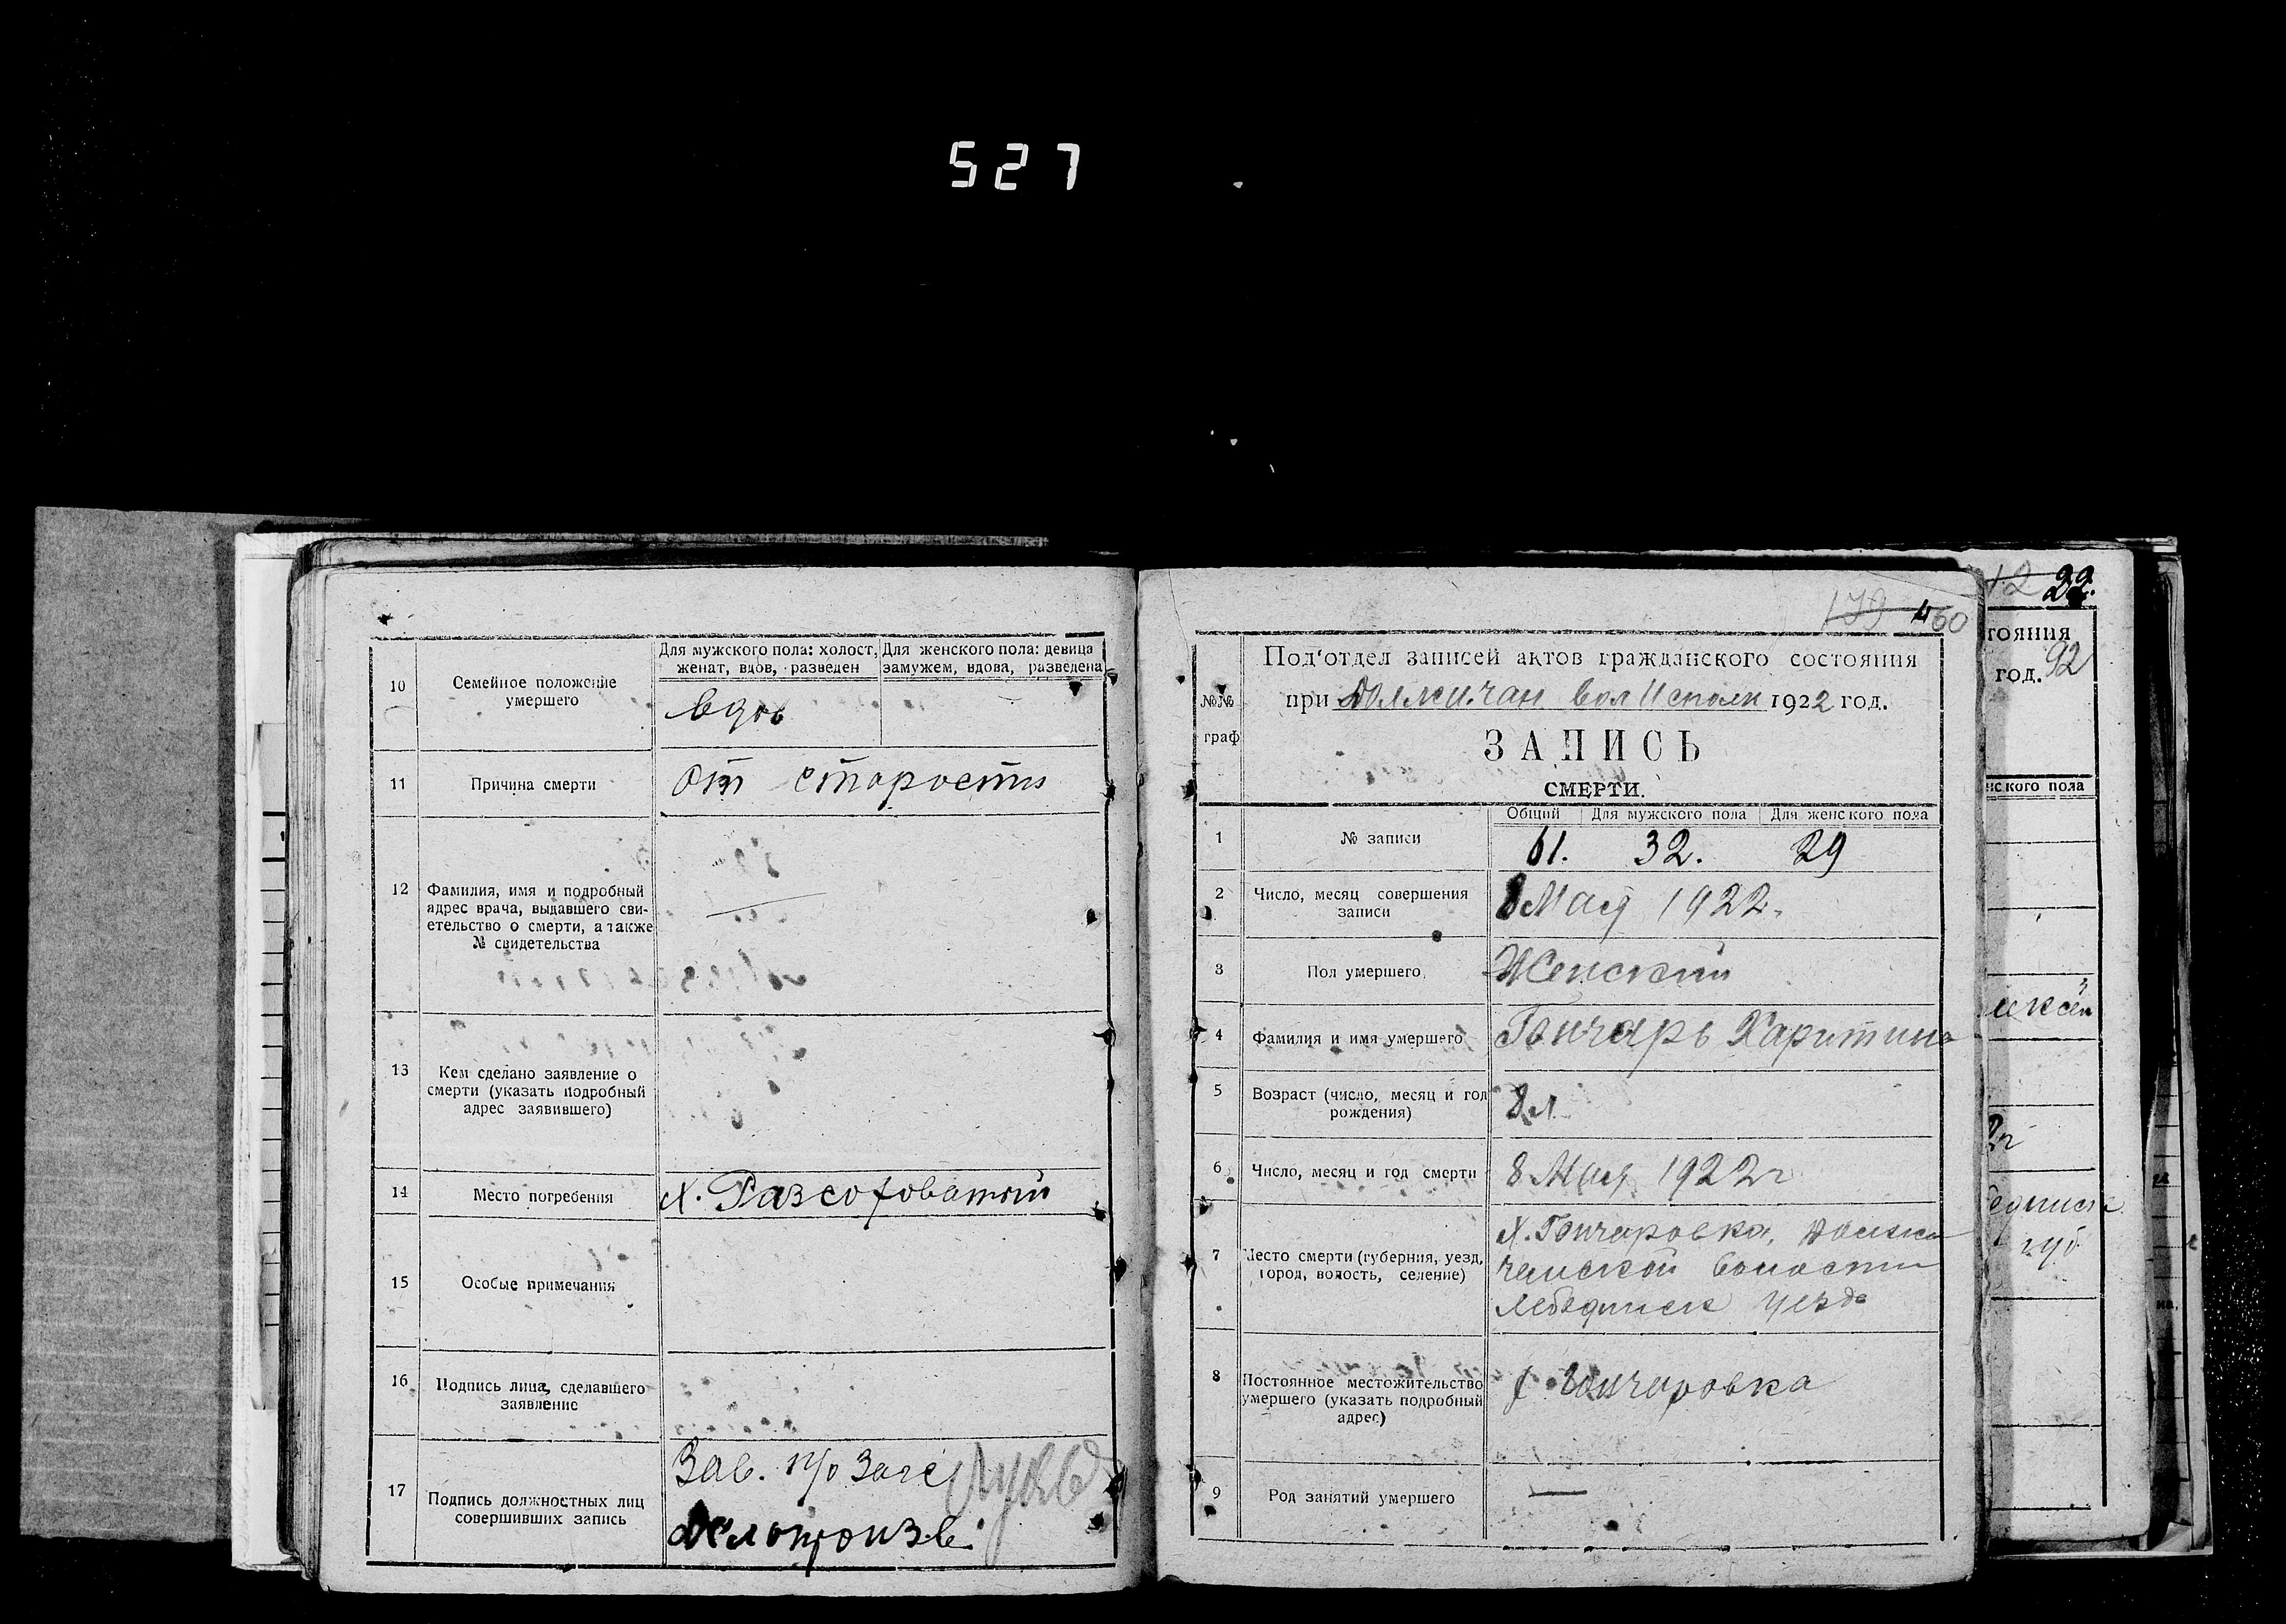 527
10
Семейное положение
умершего
Для мужского пола: холост,
женат, вдов, разведен
Для женского пола: девица
замужем, вдова, разведена
вдов
11
Причина смерти
от старости
12
Фамилия, имя и подробный
адрес врача, выдавшего сви-
етельство о смерти, а также
№ свидетельства
13
Кем сделано заявление о
смерти (указать подробный
адрес заявившего)
14
Место погребения
х. Разсоховатый
15
Особые примечания
16
Подпись лица, сделавшего
заявление
17
Подпись должностных лиц
совершивших запись
Зав. п/о Загс
Делопроизв.
179 160
№№
граф
Под'отдел записей актов гражданского состояния
при Должичан волИсполк 1922 год.
ЗАПИСЬ
СМЕРТИ.
Общий Для мужского пола Для женского пола
1
№ записи
61. 32. 29
2
Число, месяц совершения
записи
8 Мая 1922.
3
Пол умершего
Женский
4
Фамилия и имя умершего
Гончарь Харитина
5
Возраст (число, месяц и год
рождения)
8 л
6
Число, месяц и год смерти
8 Мая 1922 г
7
Место смерти (губерния, уезд,
город, волость, селение)
х. Гончаровка, Должи
чанской волости
Лебединск уезда
8
Постоянное местожительство
умершего (указать подробный
адрес)
х Гончаровка
9
Род занятий умершего
—
12 22.
тояния
год. 92
нского пола
2г
един​ск
губ